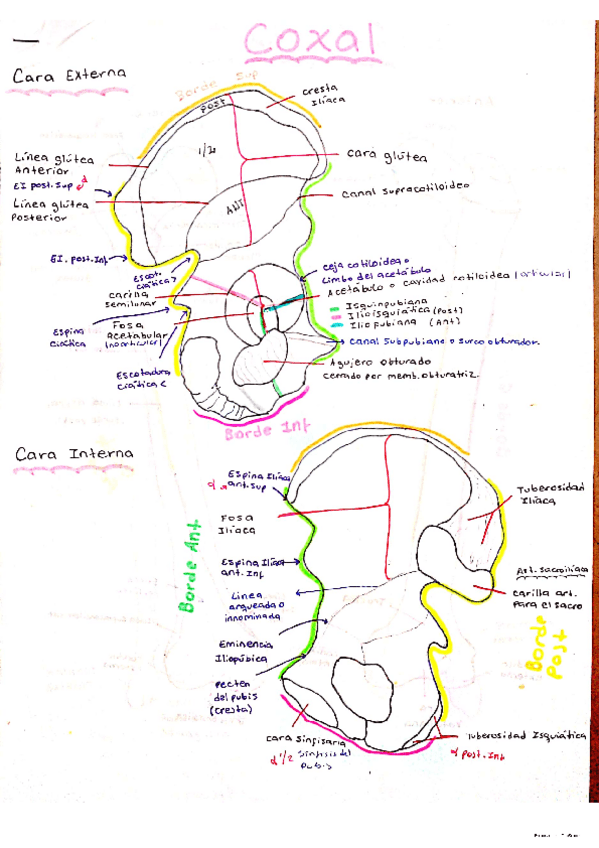 Coxal
Cara Externa
Borde Sup
cresta
Ilíaca
Post
1/2
Ant
Línea glútea
Anterior
EI post. Sup
Línea glútea
Posterior
Cara glútea
Canal supracotiloideo
EI. post. Inf
Escot.
ciática >
carilla
semilunar
Espina
ciática
Fosa
Acetabular
(no articular)
Escotadura
ciática <
ceja cotiloidea o
Limbo del acetábulo
Acetábulo o cavidad cotiloidea (articular)
Isquiopubiana
Ilioisquiática (Post)
Iliopubiana (Ant)
Canal Subpubiano o surco obturador.
Agujero obturado
cerrado por memb. obturatriz.
Borde Inf
Cara Interna
Espina Ilíaca
ant. sup
Fosa
Ilíaca
Borde Ant.
Espina Ilíaca
ant. Inf
Línea
arqueada o
innominada
Eminencia
Iliopúbica
pecten
del pubis
(cresta)
cara sinfisaria
1/2 sínfisis del
pubis
Tuberosidad
Ilíaca
Art. sacroilíaca
carilla art.
para el sacro
Borde
Post
Tuberosidad Isquiática
post. Inf